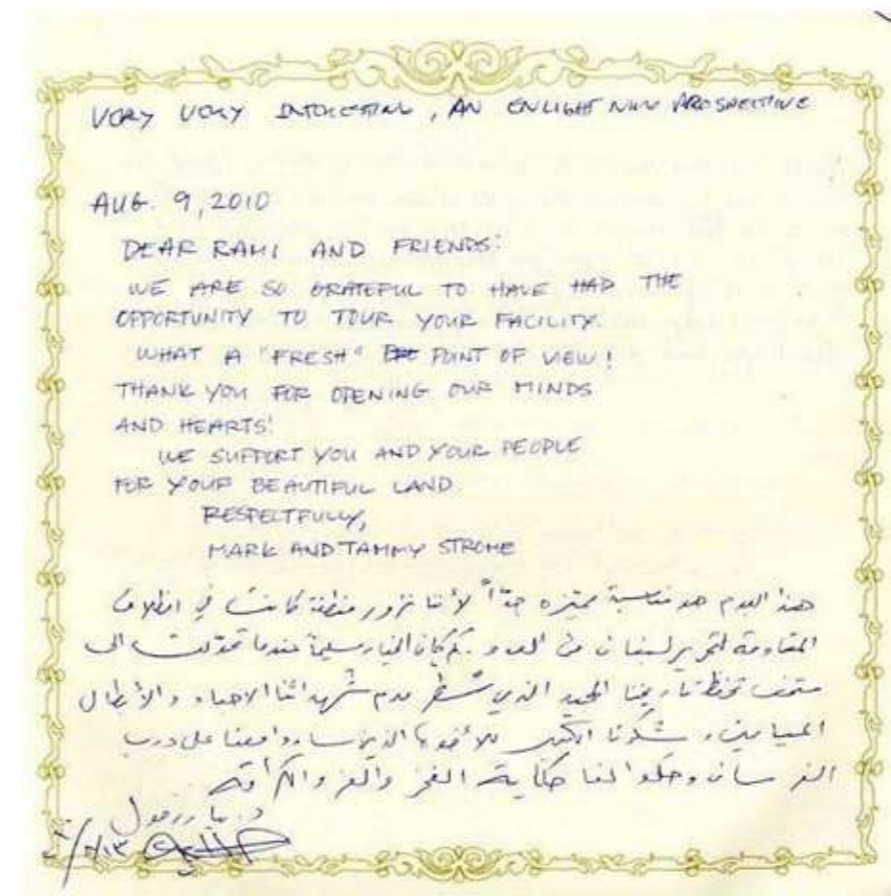 VERY VERY INTERESTING, AN ENLIGHTNING PROSPECTIVE
AUG. 9, 2010
DEAR RAMI AND FRIENDS:
WE ARE SO GRATEFUL TO HAVE HAD THE
OPPORTUNITY TO TOUR YOUR FACILITY.
WHAT A "FRESH" POINT OF VIEW!
THANK YOU FOR OPENING OUR MINDS
AND HEARTS!
WE SUPPORT YOU AND YOUR PEOPLE
FOR YOUR BEAUTIFUL LAND.
RESPECTFULLY,
MARK AND TAMMY STROME
هذا اليوم هو مناسبة مميزه جداً لأننا نزور منطقة كانت في انطلاقة
المقاومة لتحرير لبنان من العدو. كم كان الخيار سليماً عندما تحولت الى
متحف تحفظ تاريخنا المجيد الذي سُطِّر بدم شهدائنا الاحباء والأبطال
الميامين، شكرنا الكبير للأخوة الذين ساروا معنا على درب
الفرسان وحكوا لنا حكاية الفخر والعز والكرامة
د. بيار